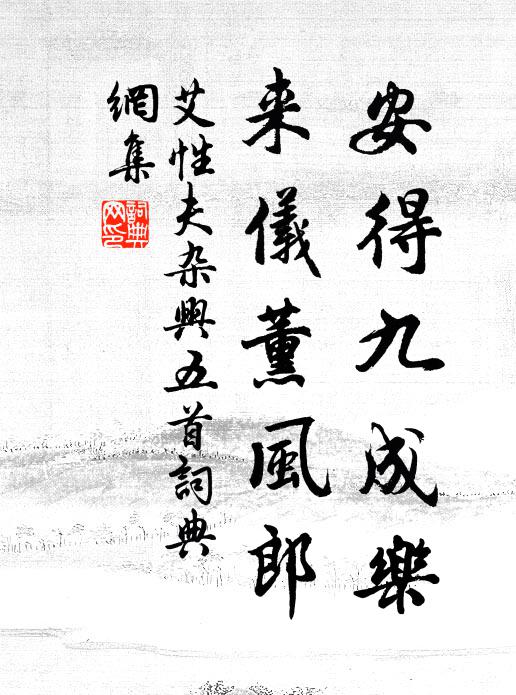 安得九成樂
来儀薰風郎
艾性夫杂興五首詞典
網集
詞典網印